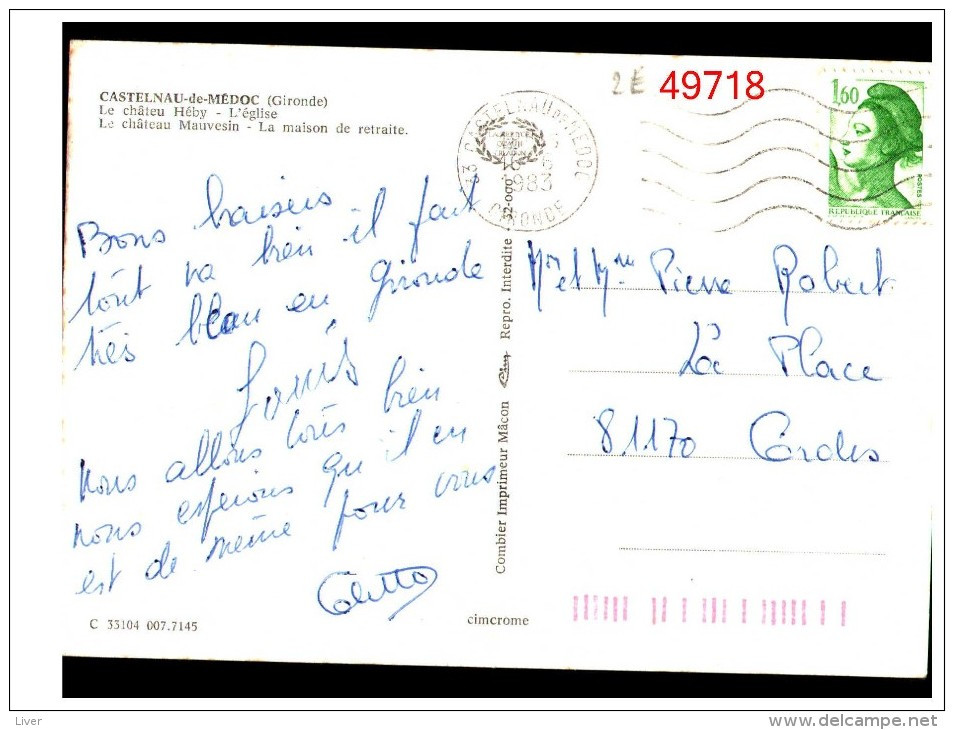 2 E 49718
CASTELNAU-de-MÉDOC (Gironde)
Le châteu Héby - L'église
Le château Mauvesin - La maison de retraite.
33 CASTELNAU DE MEDOC
1983
GIRONDE
1,60
POSTES
REPUBLIQUE FRANÇAISE
Bons baisers
tout va bien il fait
très beau en Gironde
Louis
nous allons tous bien
nous esperons qu'il en
est de même pour vous
Colette
Mr et Mme Pierre Robert
La Place
81170 Cordes
Combier Imprimeur Mâcon
Repro. Interdite
C 33104 007.7145
cimcrome
Liver
www.delcampe.net